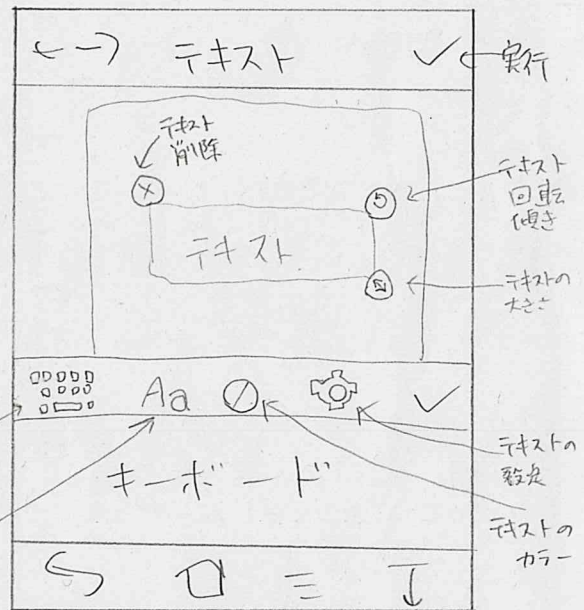 テキスト
実行
テキスト
削除
テキスト
回転
傾き
テキスト
テキストの
大きさ
Aa
テキストの
設定
キーボード
テキストの
カラー